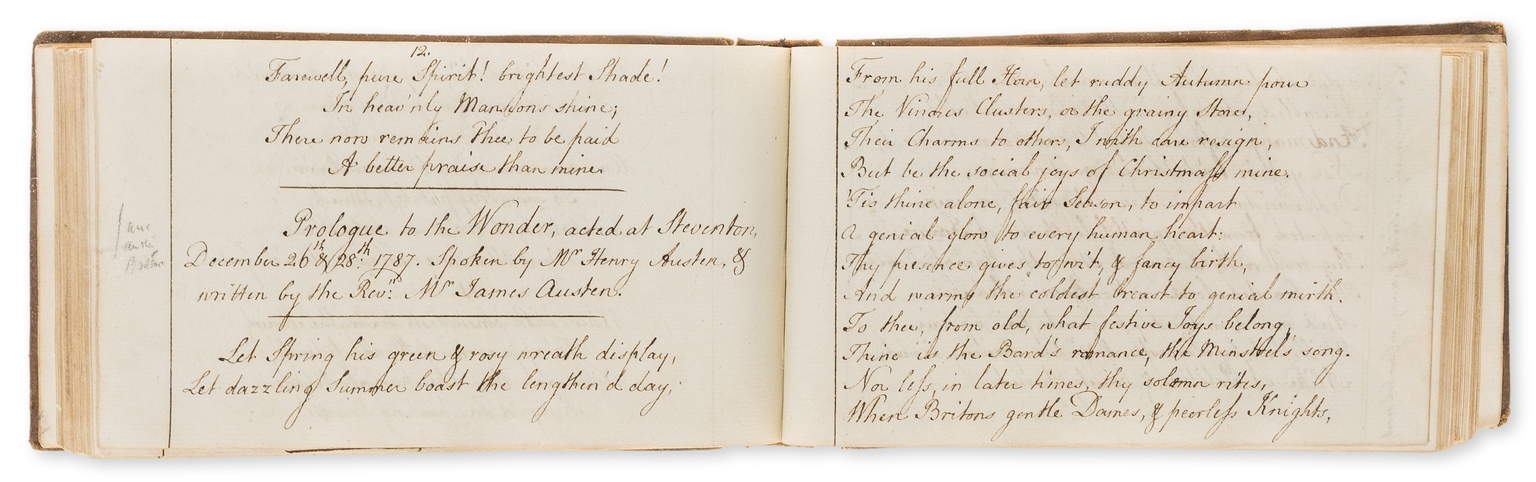 12.
Farewell, pure Spirit! brightest Shade!
In heav'nly Mansions shine;
There now remains Thee to be paid
A better praise than mine.
Prologue to the Wonder, acted at Steventon,
December 26th & 28th 1787. Spoken by Mr Henry Austen, &
written by the Revd. Mr James Austen.
Jane
Austen
Let Spring his green & rosy wreath display,
Let dazzling Summer boast the lengthen'd day;
From his full Horn, let ruddy Autumn pour
The Vine's Clusters, or the grainy Store,
Their Charms to others, I with care resign,
But be the social joys of Christmass mine.
'Tis thine alone, fair Season, to impart
A genial glow to every human heart:
Thy presence gives to wit, & fancy birth,
And warms the coldest breast to genial mirth.
To thee, from old, what festive Joys belong,
Thine is the Bard's romance, the Minstrel's song.
Nor less, in later times, thy solemn rites,
When Britons gentle Dames, & peerless Knights,